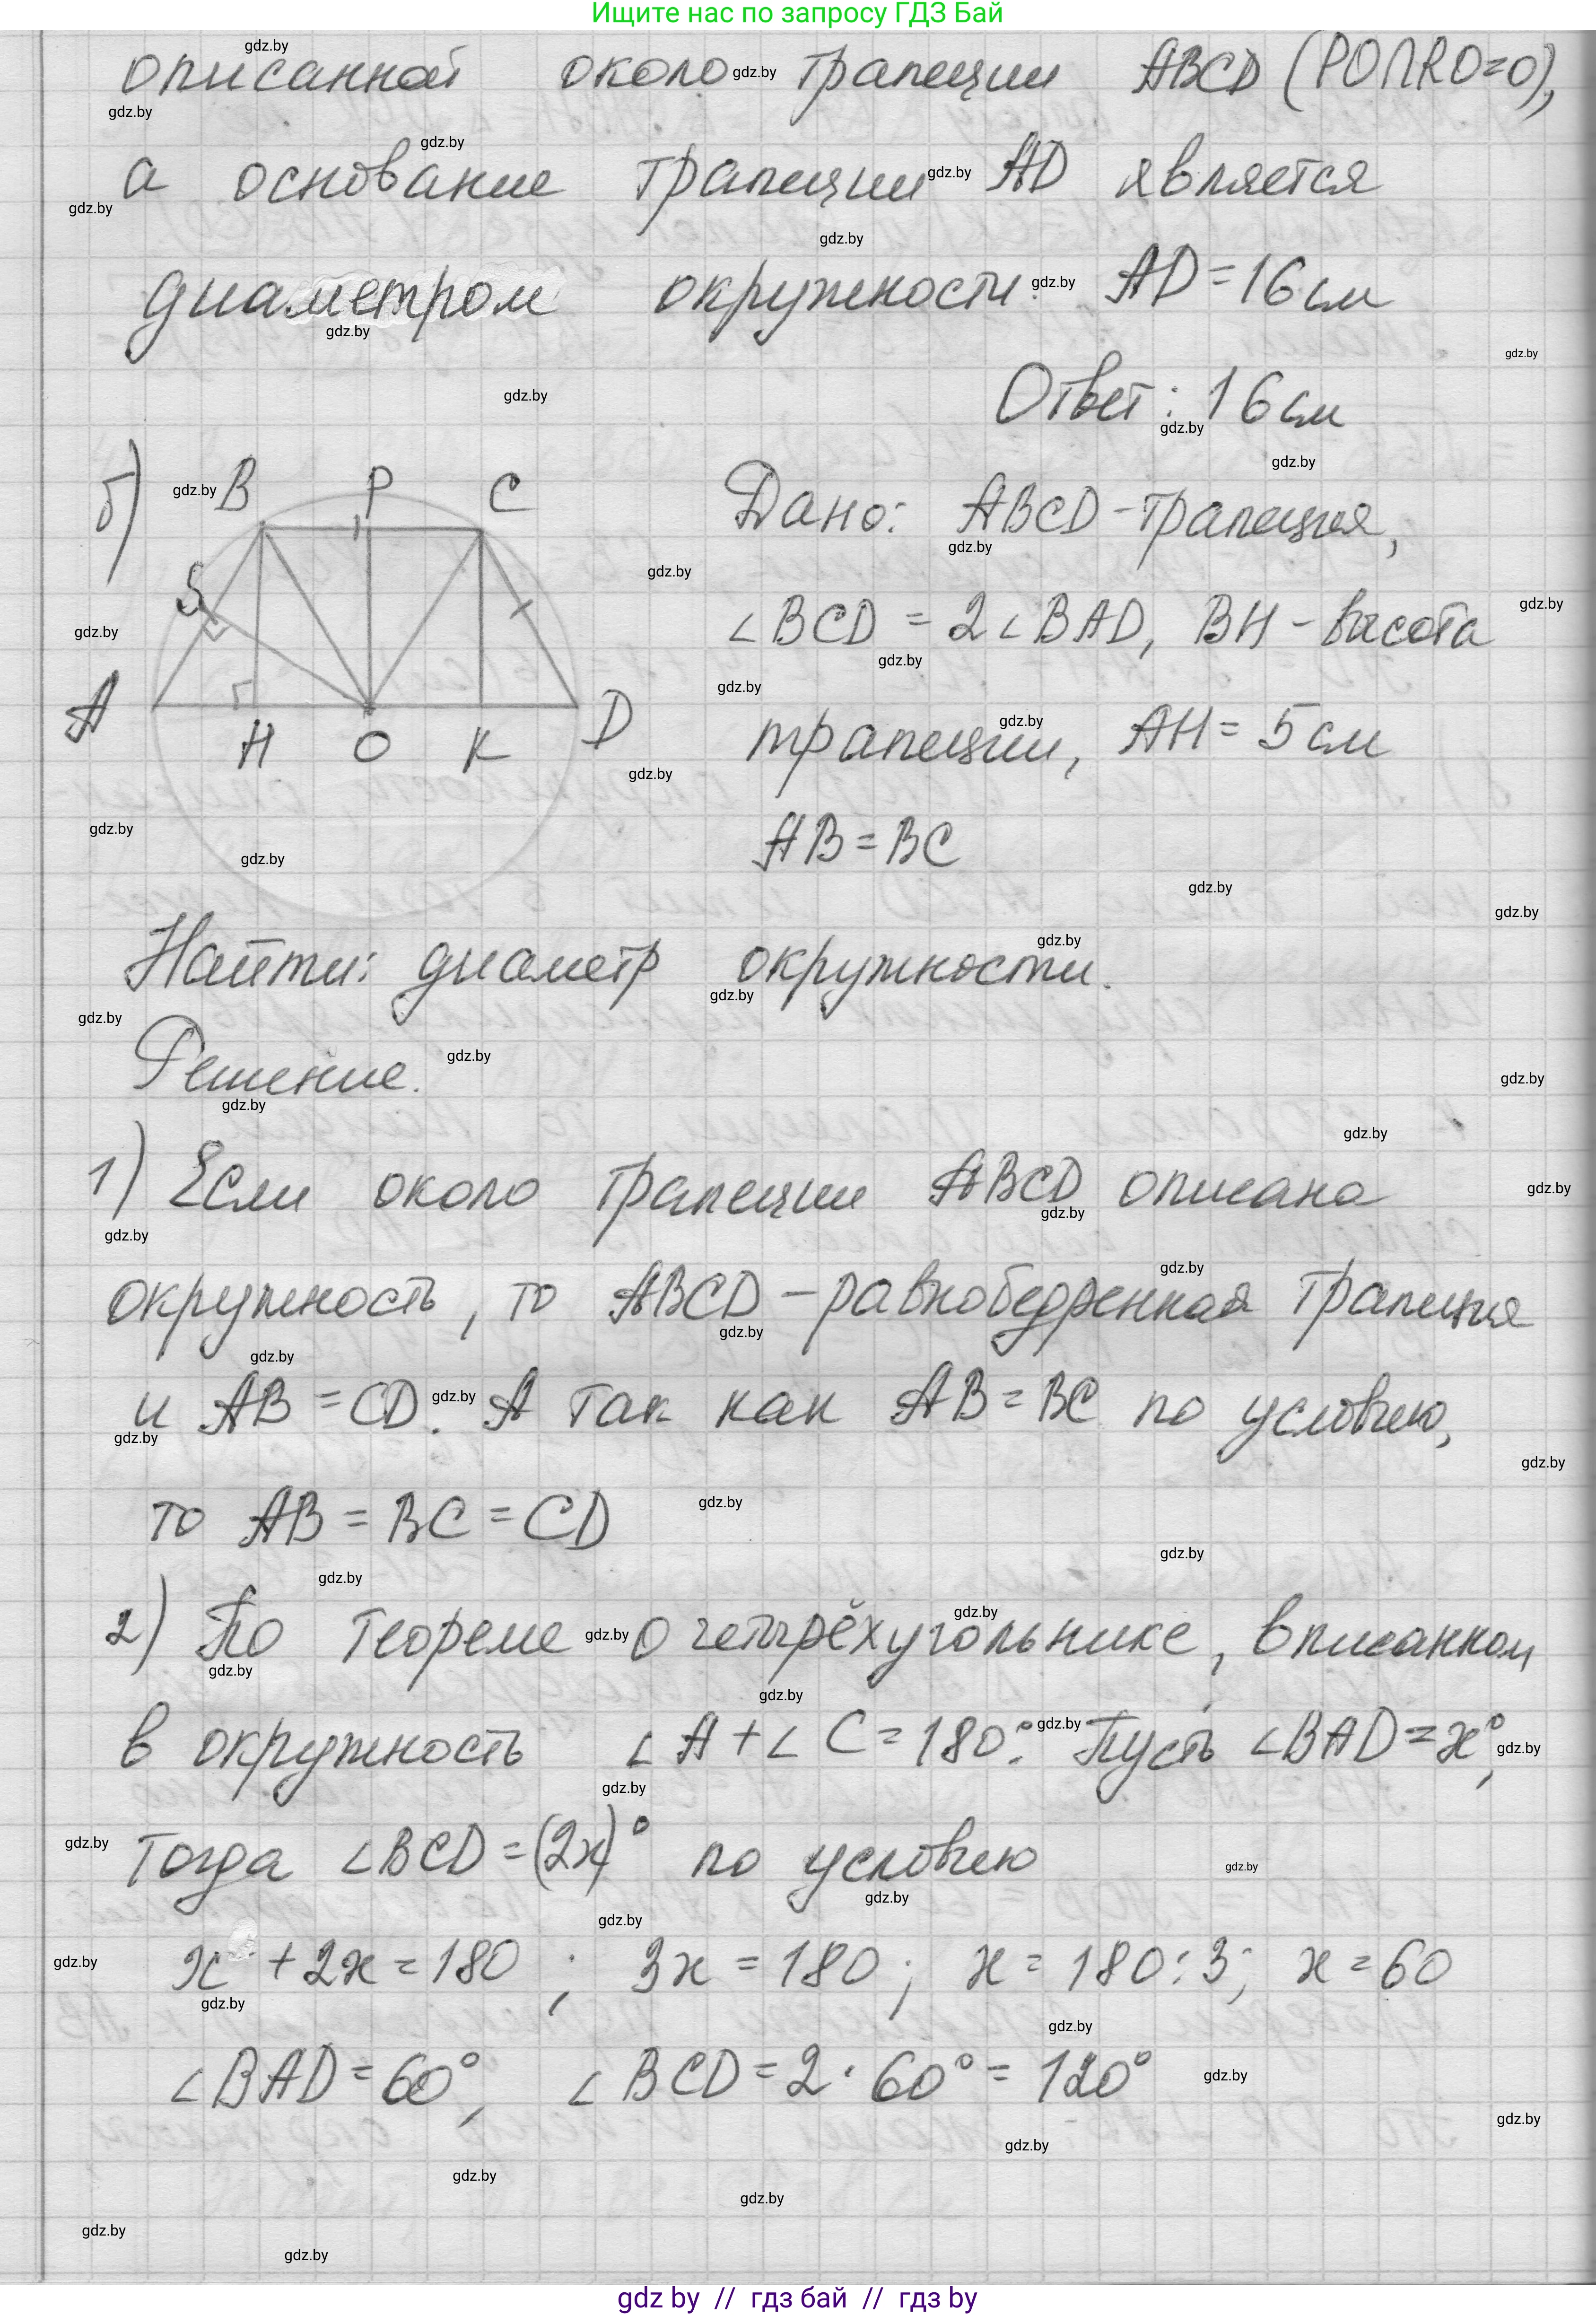 Ищите нас по запросу ГДЗ Бай
описанной около трапеции ABCD (PO∩RO=O),
а основание трапеции AD является
диаметром окружности. AD=16 см
Ответ: 16 см
б) B P C
S
A H O K D
Дано: ABCD-трапеция,
∠BCD = 2∠BAD, BH - высота
трапеции, AH = 5 см
AB = BC
Найти: диаметр окружности.
Решение.
1) Если около трапеции ABCD описана
окружность, то ABCD - равнобедренная трапеция
и AB = CD. А так как AB = BC по условию,
то AB = BC = CD
2) По теореме о четырёхугольнике, вписанном
в окружность ∠A + ∠C = 180°. Пусть ∠BAD = x°,
тогда ∠BCD = (2x)° по условию
x + 2x = 180 ; 3x = 180 ; x = 180 : 3 ; x = 60
∠BAD = 60°, ∠BCD = 2 · 60° = 120°
gdz by // гдз бай // гдз by